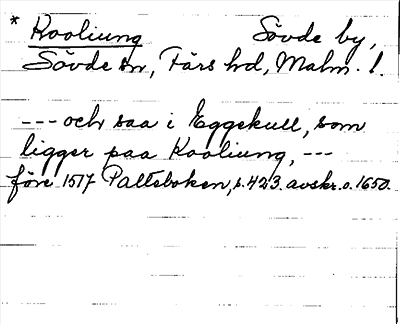 * Kooliung Sövde by,
Sövde sn, Färs hd, Malm. l.
--- och saa i Eggekull, som
ligger paa Kooliung, ---
före 1517 Paltsboken, s. 423. avskr. o. 1650.